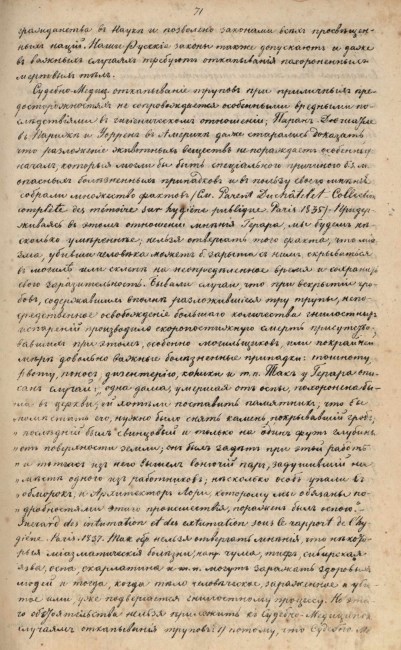 71
гражданства въ Наукѣ и позволено законами всѣхъ просвѣщен-
ныхъ націй. Наши Русскіе законы также допускаютъ и даже
въ важныхъ случаяхъ требуютъ откапыванія похороненныхъ
мертвыхъ тѣлъ.
Судебно-Медиц. откапываніе труповъ при приличныхъ пре-
досторожностяхъ не сопровождается особенными вредными по-
слѣдствіями въ гигіеническомъ отношеніи; Паранъ Дюшатле
въ Парижѣ и Уорренъ въ Америкѣ даже старались доказать
что разложеніе животныхъ веществъ не порождаетъ особенныхъ
началъ, которыя могли бы быть спеціальною причиною
опасныхъ болѣзненныхъ припадковъ и въ пользу своего мнѣнія
собрали множество фактовъ /См. Parent Duchâtelet Collection
complète des mémoire sur hygiène publique. Paris 1835/. Придер-
живаясь въ этомъ отношеніи мнѣнія Герара, мы будемъ нѣ-
сколько умѣреннѣе; нельзя отвергать того факта, что міа-
зма, убившая человѣка можетъ б. зарыта съ нимъ, скрываться
въ могилѣ или склепѣ на неопредѣленное время и сохраняя
свою заразительность. Бывали случаи, что при вскрытіи гро-
бовъ, содержавшихъ вполнѣ разложившіеся трупы, непо-
средственное освобожденіе большаго количества гнилостныхъ
испареній производило скоропостижную смерть присутство-
вавшимъ при этомъ, особенно могильщиковъ, или покрайней
мѣрѣ довольно важные болѣзненные припадки: тошноту,
рвоту, поносъ, дизентерію, колики и т.п. Такъ у Герара опи-
санъ случай: одна дама, умершая отъ оспы, похоронена бы-
ла въ церкви; ей хотѣли поставить памятникъ; что бы
помѣстить его, нужно было снять камень, покрывавшій гробъ;
послѣдній былъ свинцовый и только на одинъ футъ глубины
отъ поверхности земли; онъ былъ задѣтъ при этой работѣ
и тотчасъ изъ него вышелъ вонючій паръ, задушившій на
мѣстѣ одного изъ работниковъ; нѣсколько особъ упали въ
обморокъ, и Архитекторъ Лори, которому мы обязаны по-
дробностями этого происшествія, пораженъ былъ оспою.
Guerard des inhumation et des exhumation sous le rapport de l'hy-
giène Paris 1837. Такъ обр. нельзя отвергать мнѣнія, что нѣкото-
рыя міазматическія болѣзни, напр. чума, тифъ, сибирская
язва, оспа, скарлатина и т.п. могутъ заражать здоровыхъ
людей и тогда, когда тѣло человѣческое, зараженное и уби-
тое ими уже подвергается гнилостному процессу. Но
обстоятельства нельзя приложить къ Судебно-Медицинск.
случаямъ откапыванія труповъ: 1) потому, что Судебно Ме